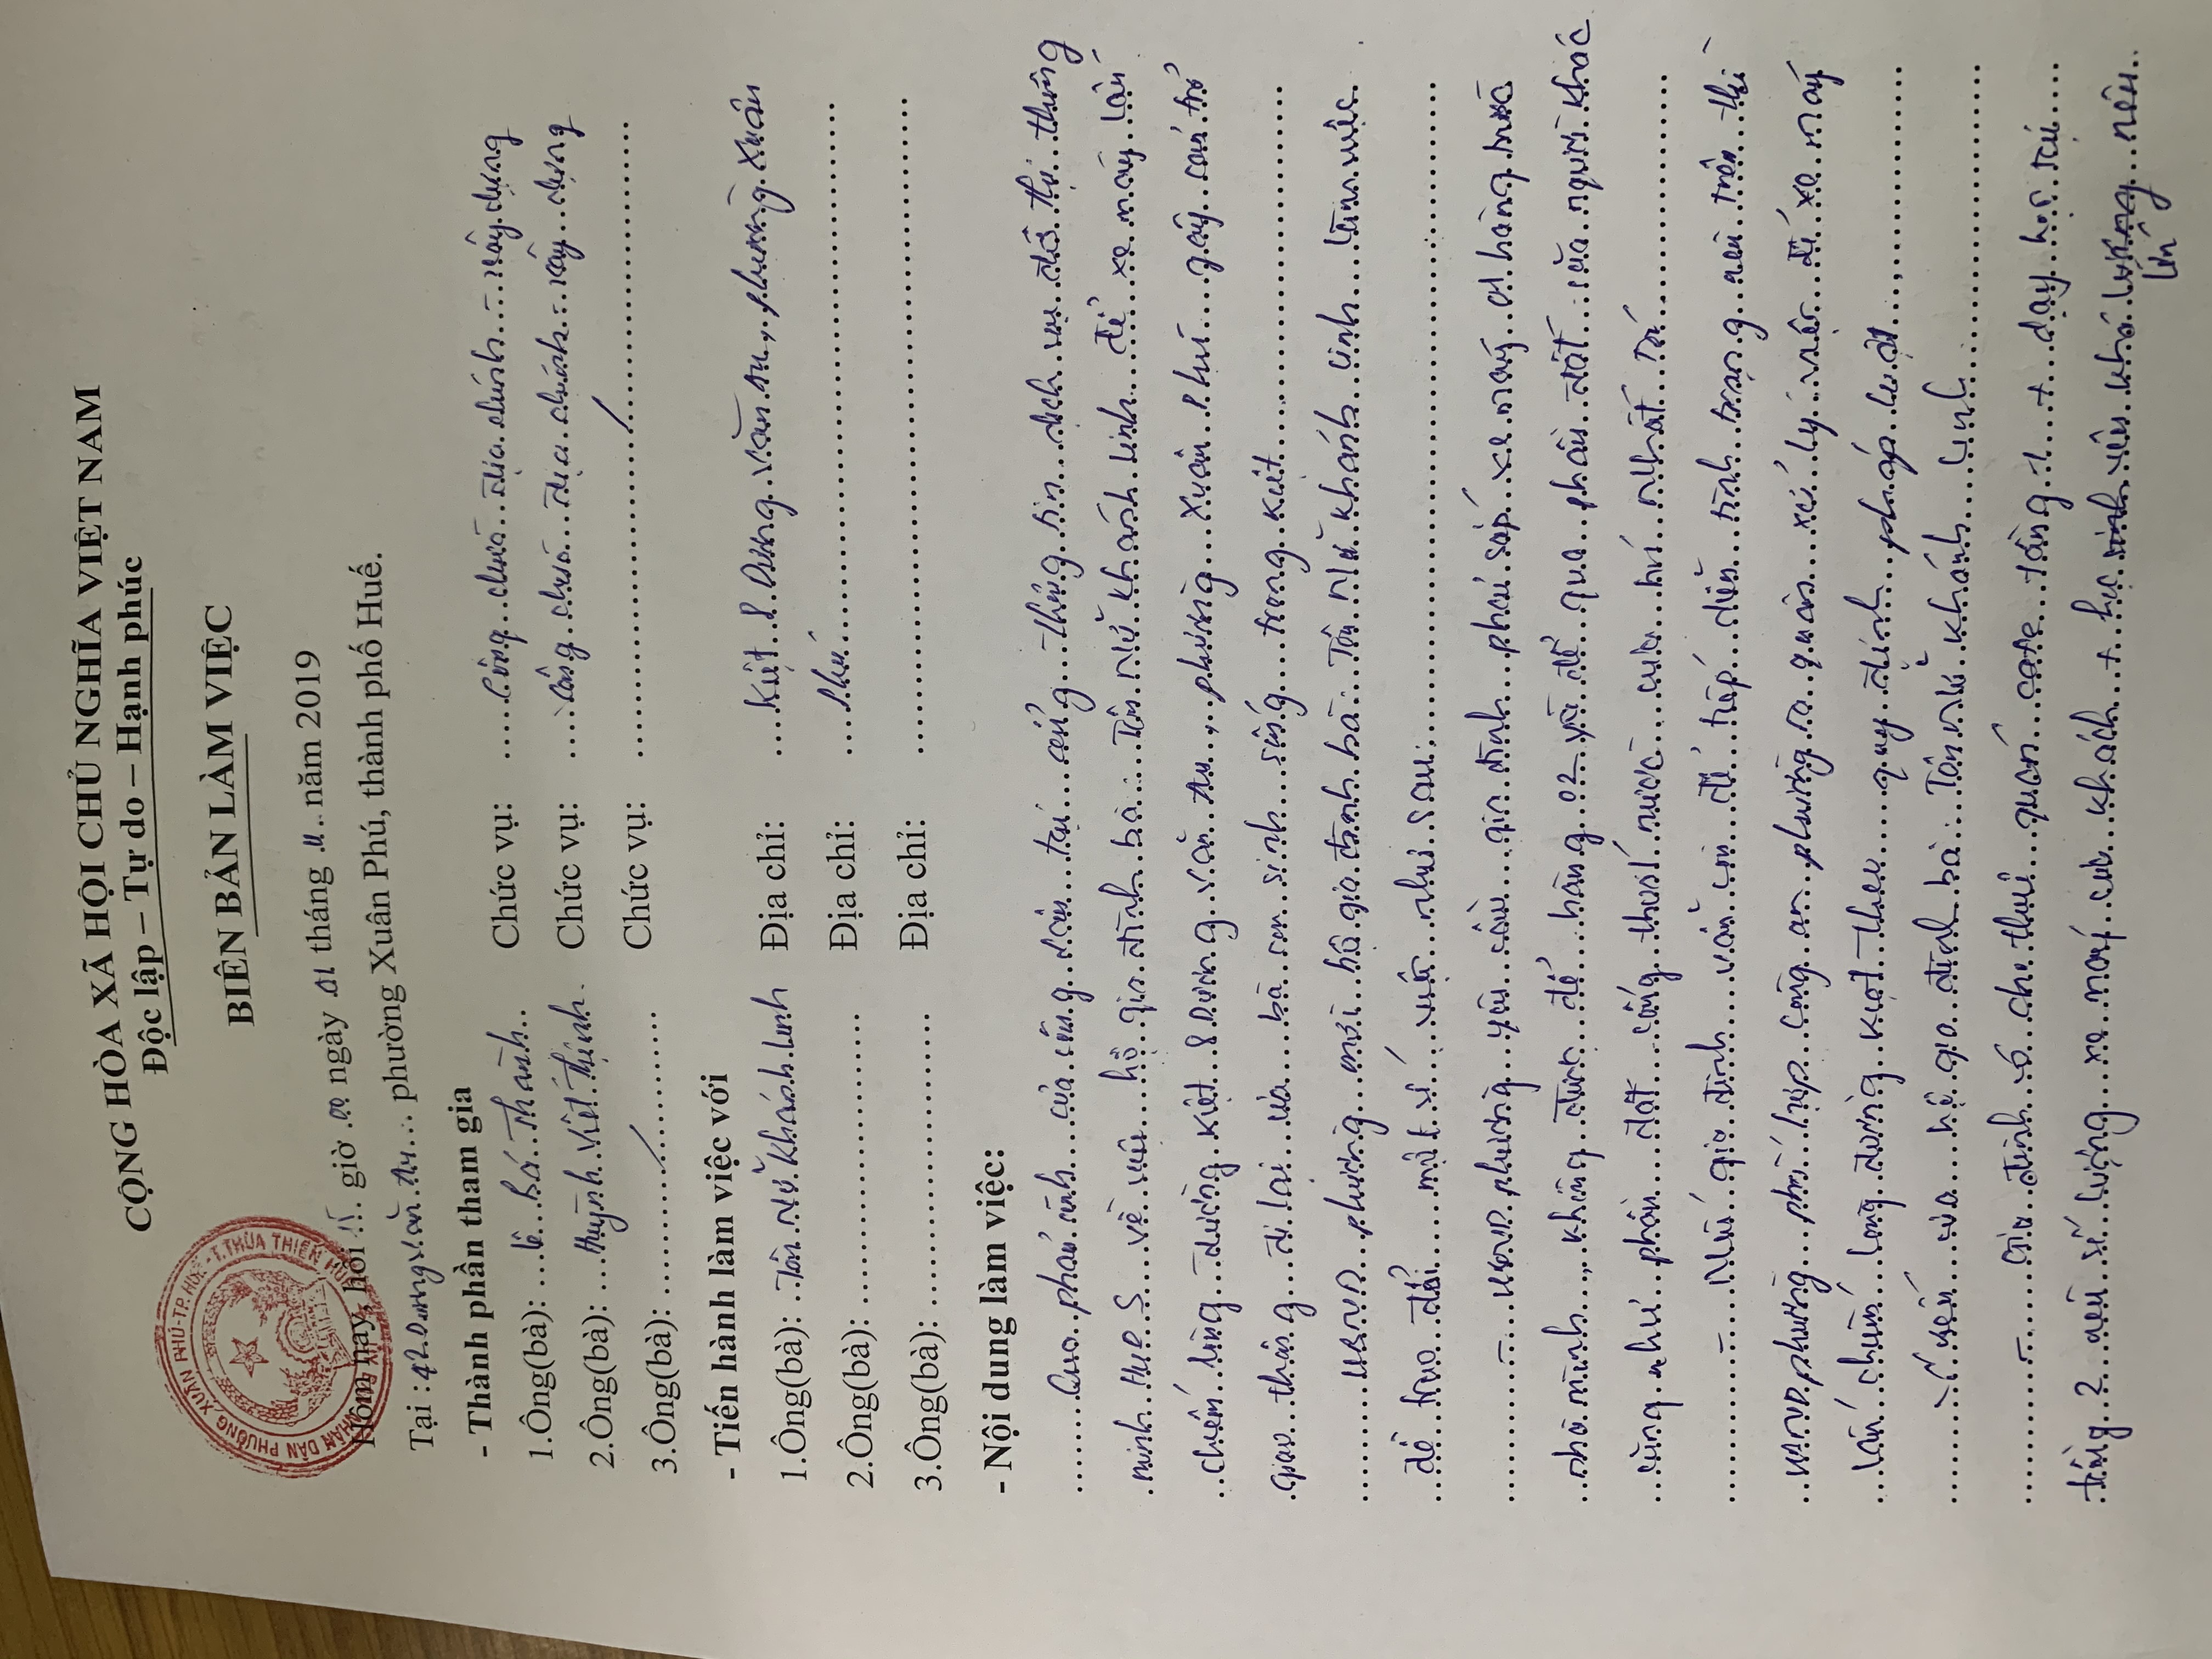 CỘNG HÒA XÃ HỘI CHỦ NGHĨA VIỆT NAM
Độc lập – Tự do – Hạnh phúc
BIÊN BẢN LÀM VIỆC
Hôm nay, hồi 15 giờ 00 ngày 01 tháng 11 năm 2019
Tại : 42 Dương Văn An phường Xuân Phú, thành phố Huế.
- Thành phần tham gia
1.Ông(bà): Lê Bá Thành Chức vụ: Công chức địa chính - xây dựng
2.Ông(bà): Huỳnh Viết Thịnh Chức vụ: Công chức địa chính - xây dựng
3.Ông(bà): Chức vụ:
- Tiến hành làm việc với
1.Ông(bà): Tôn Nữ Khánh Linh Địa chỉ: Kiệt 8 Dương Văn An, phường Xuân
2.Ông(bà): Địa chỉ: Phú
3.Ông(bà): Địa chỉ:
- Nội dung làm việc:
Qua phản ánh của công dân tại cổng thông tin dịch vụ đô thị thông
minh Hue S về việc hộ gia đình bà Tôn Nữ Khánh Linh để xe máy lấn
chiếm lòng đường kiệt 8 Dương Văn An, phường Xuân Phú gây cản trở
giao thông đi lại của bà con sinh sống trong kiệt
UBND phường mời hộ gia đình bà Tôn Nữ Khánh Linh làm việc
để trao đổi một số việc như sau:
- UBND phường yêu cầu gia đình phải sắp xe máy, hàng trước
nhà mình, không được để hàng 02 và để qua phần đất của người khác
cũng như phần đất cống thoát nước
- Nếu gia đình vẫn còn để tiếp diễn tình trạng nêu trên thì
UBND phường phối hợp công an phường ra quân xử lý việc để xe máy
lấn chiếm lòng đường kiệt theo quy định pháp luật
Ý kiến của hộ gia đình bà Tôn Nữ Khánh Linh
- Gia đình có cho thuê quán cafe tầng 1 + dạy học tại
tầng 2 nên số lượng xe máy của khách + học sinh viên khá lượng nên
lớn